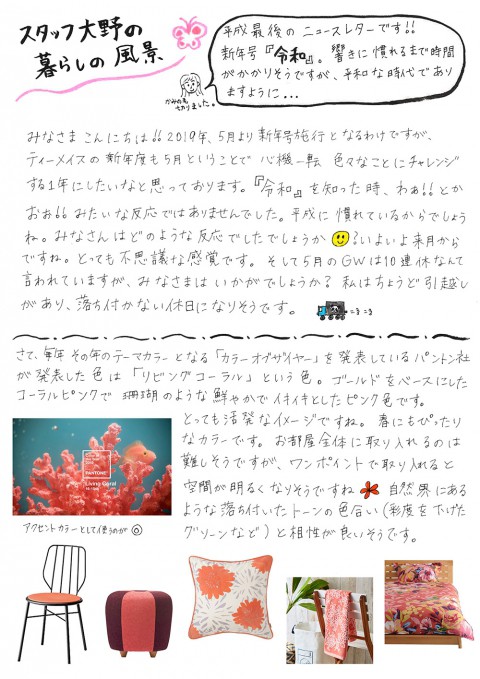 スタッフ大野の
暮らしの風景
平成最後のニュースレターです!!
新年号『令和』。響きに慣れるまで時間
がかかりそうですが、平和な時代であり
ますように...
かみの毛
切りました。
みなさまこんにちは!! 2019年、5月より新年号施行となるわけですが、
ティーメイスの新年度も5月ということで 心機一転 色々なことにチャレンジ
する1年にしたいなと思っております。『令和』を知った時、わぁ!! とか
おぉ!! みたいな反応ではありませんでした。平成に慣れているからでしょう
ね。みなさんはどのような反応でしたでしょうか?いよいよ来月から
ですね。とっても不思議な感覚です。そして5月のGWは10連休なんて
言われていますが、みなさまはいかがでしょうかる 私はちょうど引越し
があり、落ち付かない休日になりそうです。
さて、毎年その年のテーマカラーとなる「カラーオブザイヤー」を発表しているパントン社
が発表した色は「リビングコーラル」という色。ゴールドをベースにした
コーラルピンクで 珊瑚のような鮮やかでイキイキとしたピンク色です。
とっても活発なイメージですね。春にもぴったり
なカラーです。お部屋全体に取り入れるのは
難しそうですが、ワンポイントで取り入れると
空間が明るくなりそうですね 自然界にある
ような落ち付いたトーンの色合い(彩度を下げた
グリーンなど)と相性が良いそうです。
PANTONE
Living Coral
アクセントカラーとして使うのが◎